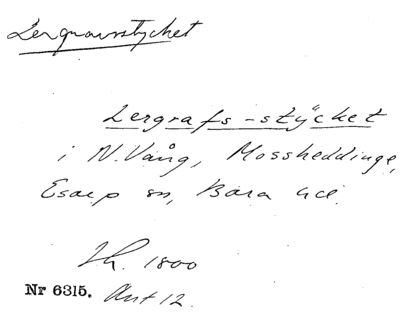 Lergravsstycket
Lergrafs-stÿcket
i N. Vång, Mossheddinge,
Esarp sn, Bara hd.
Nr 6315. Akt 12.
1800